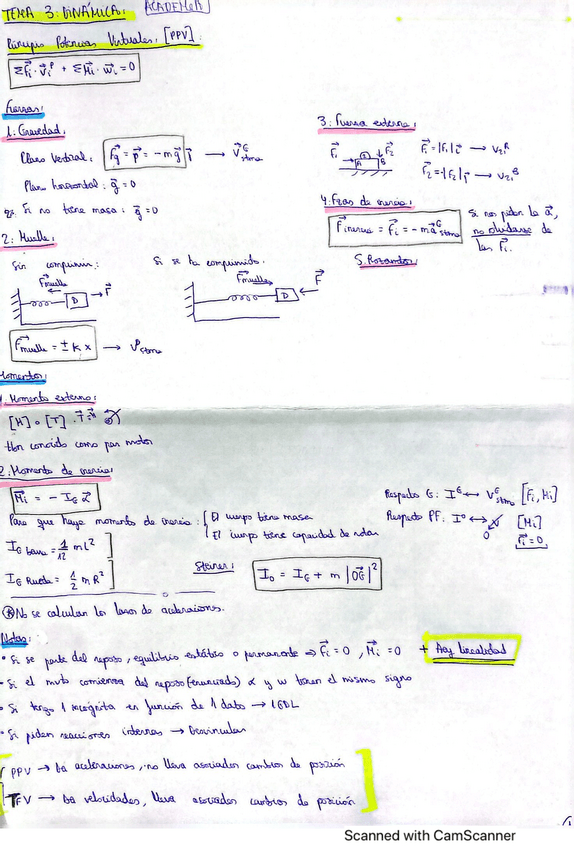 TEMA 3: DINÁMICA: ACADEMEX
Principio Potencias Virtuales: [PPV]:
ΣF⃗i · v⃗iᴾ + ΣM⃗i · w⃗i = 0
Fuerzas:
1: Gravedad:
Plano Vertical: F⃗g = p⃗ = -m g⃗ j⃗ → V⃗ᴳ
Plano horizontal: g⃗ = 0
Si no tiene masa: g⃗ = 0
2: Muelle:
Sin comprimir: Si se ha comprimido.
F⃗muelle D F⃗
F⃗muelle D F⃗
F⃗muelle = ± K x → Vᴾ
3: Fuerza externa:
F⃗1 A B F⃗2 F⃗1 = |F1| i⃗ →
F⃗2 = -|F2| j⃗ →
4: Fzas de inercia:
F⃗inercia = F⃗i = -m a⃗ᴳ
Si nos piden la a⃗, no olvidarse de las F⃗i.
5. Rozamiento
Momentos:
1. Momento externo:
[M] o [T]
Mom conocido como par motor
2: Momento de inercia:
M⃗i = - I_G α⃗
Para que haya momento de inercia: El cuerpo tiene masa
El cuerpo tiene capacidad de rotar
I_G barra = 1/12 m L²
I_G Rueda = 1/2 m R²
Steiner: I_O = I_G + m |O⃗G|²
Respecto G: Iᴳ ↔ Vᴳ [F⃗i, Mi]
Respecto PF: Iᴼ ↔ 0 [Mi]
F⃗i = 0
No se calculan los lazos de aceleraciones.
Notas:
• Si se parte del reposo, equilibrio estático o permanente ⇒ F⃗i = 0, M⃗i = 0 + Hay linealidad
• Si el mvto comienza del reposo (enunciado) α y w tienen el mismo signo
• Si tengo 1 incógnita en función de 1 dato → 1GDL
• Si piden reacciones internas → Desvincular
PPV → Da aceleraciones, no lleva asociados cambios de posición
TFV → Da velocidades, lleva asociados cambios de posición
Scanned with CamScanner